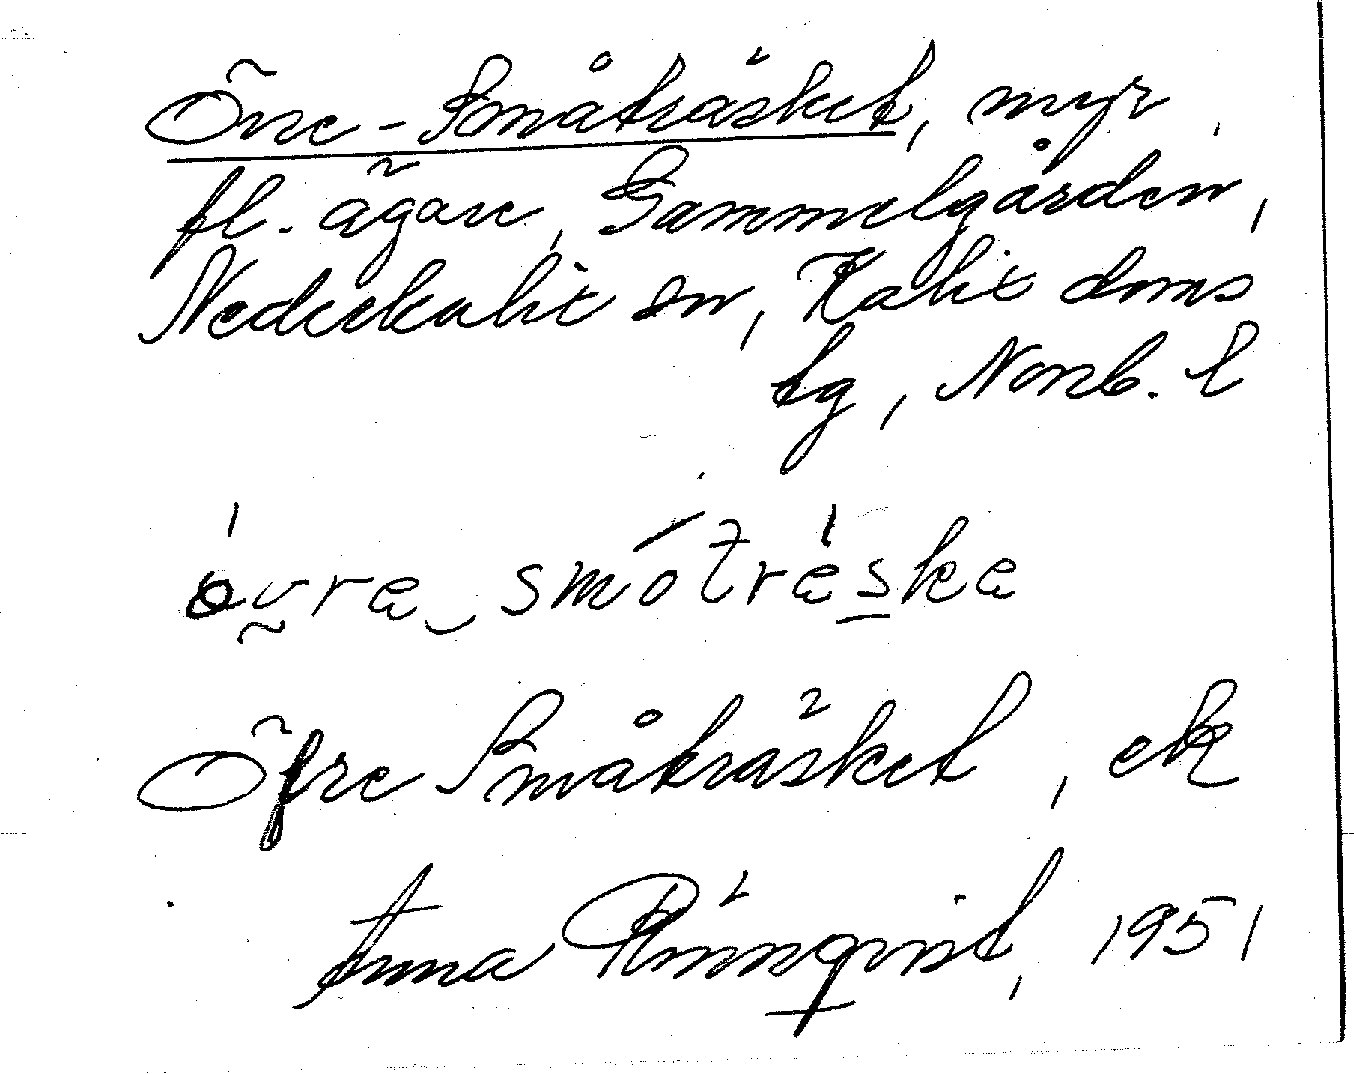 Övre-Småträsket, myr,
fl. ägare, Gammelgården,
Nederkalix sn, Kalix doms
lg, Norrb. l
Öfre Småträsket, ek
Anna Rönnqvist, 1951